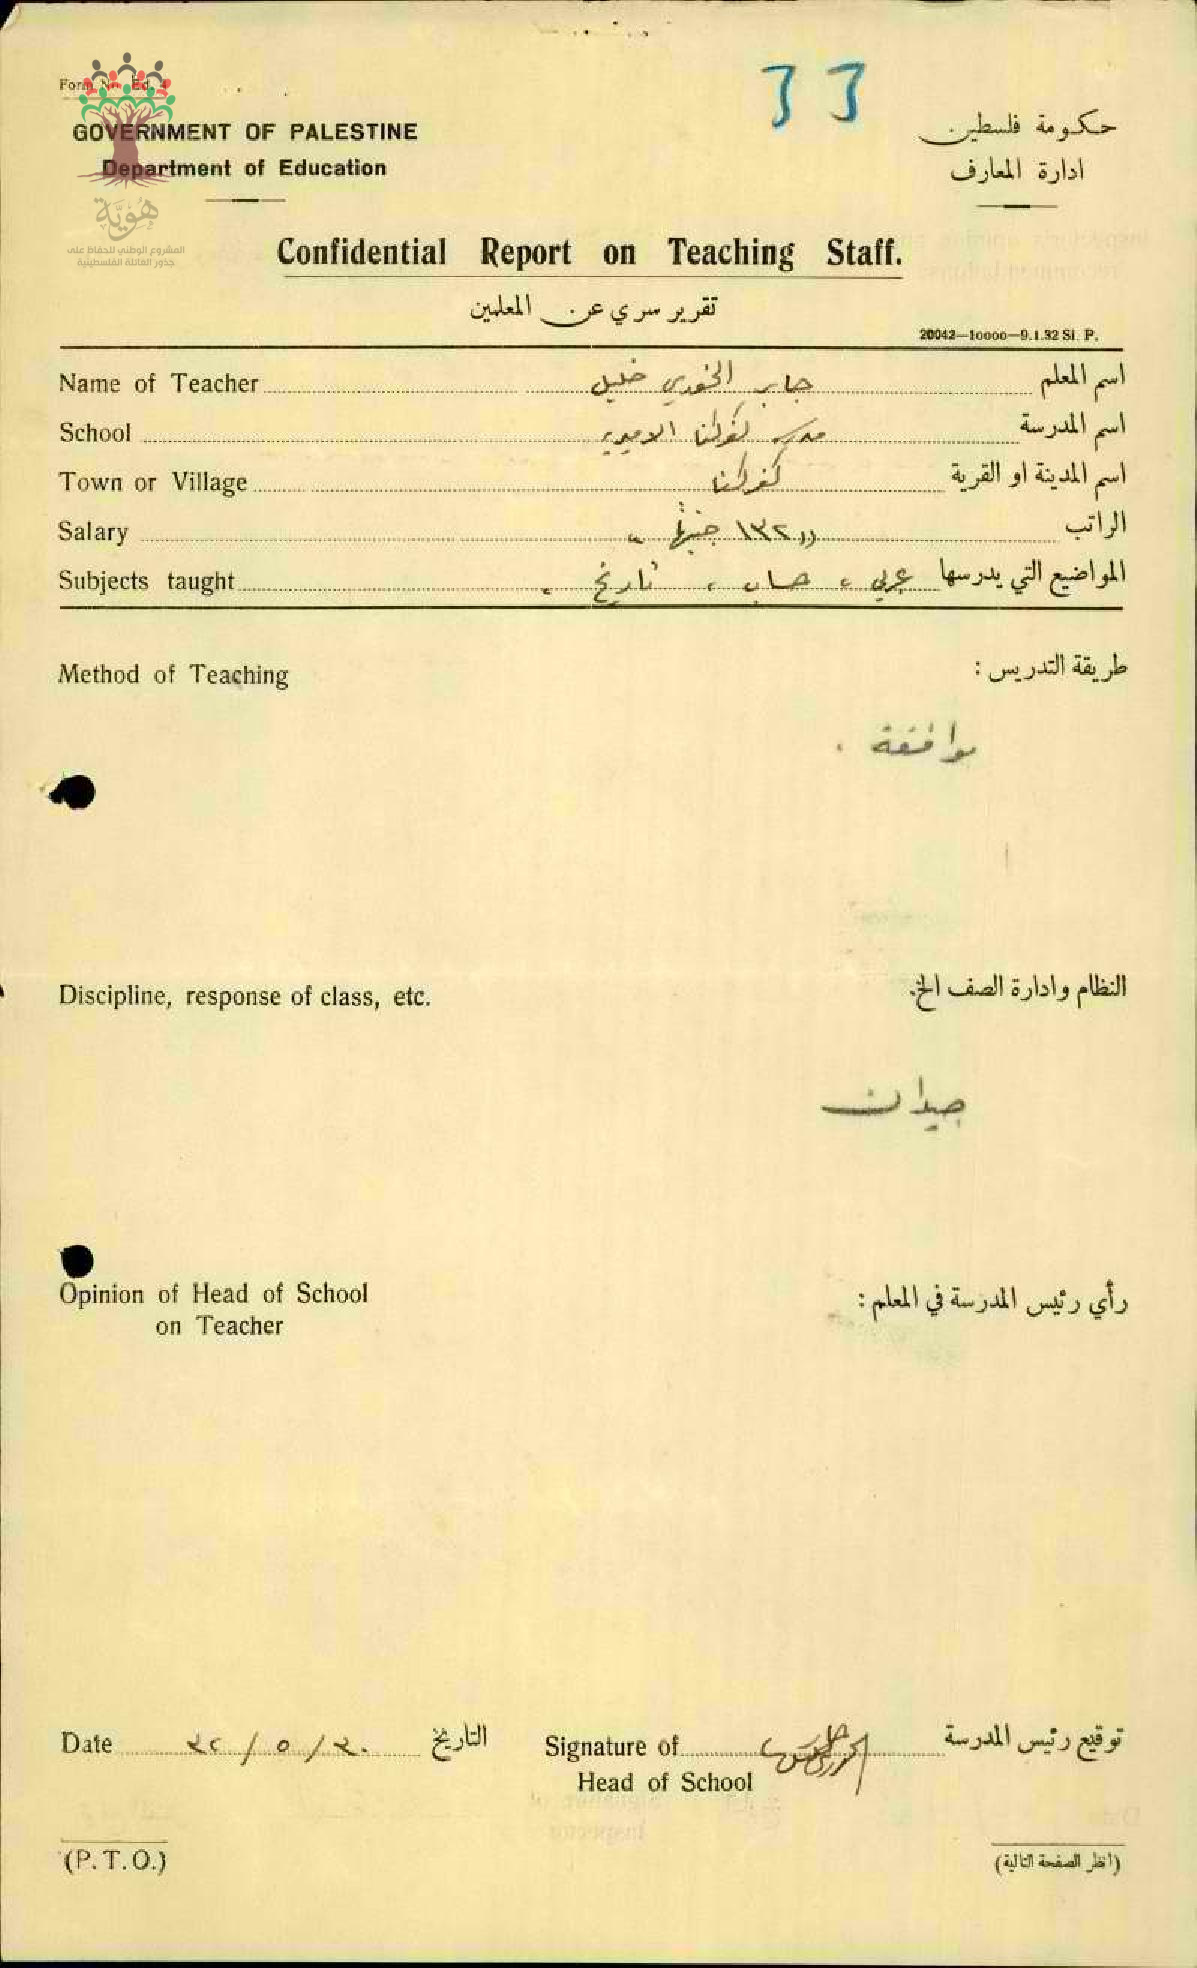 33
Form No. Ed. 4
GOVERNMENT OF PALESTINE
Department of Education
حكومة فلسطين
ادارة المعارف
هُوِيَّة
المشروع الوطني للحفاظ على
جذور العائلة الفلسطينية
Confidential Report on Teaching Staff.
تقرير سري عن المعلمين
20042—10000—9.1.32 SI. P.
Name of Teacher جابر الخوري خليل اسم المعلم
School مدرسة كفركنا الاميرية اسم المدرسة
Town or Village كفركنا اسم المدينة او القرية
Salary ١٣٢ جنيهاً الراتب
Subjects taught عربي ، حساب ، تاريخ . المواضيع التي يدرسها
Method of Teaching طريقة التدريس :
موافقة .
Discipline, response of class, etc. النظام وادارة الصف الخ.
جيدان
Opinion of Head of School رأي رئيس المدرسة في المعلم :
on Teacher
Date ٣٠ / ٥ / ٣٢ التاريخ Signature of توقيع رئيس المدرسة
Head of School
(P.T.O.) (انظر الصفحة التالية)